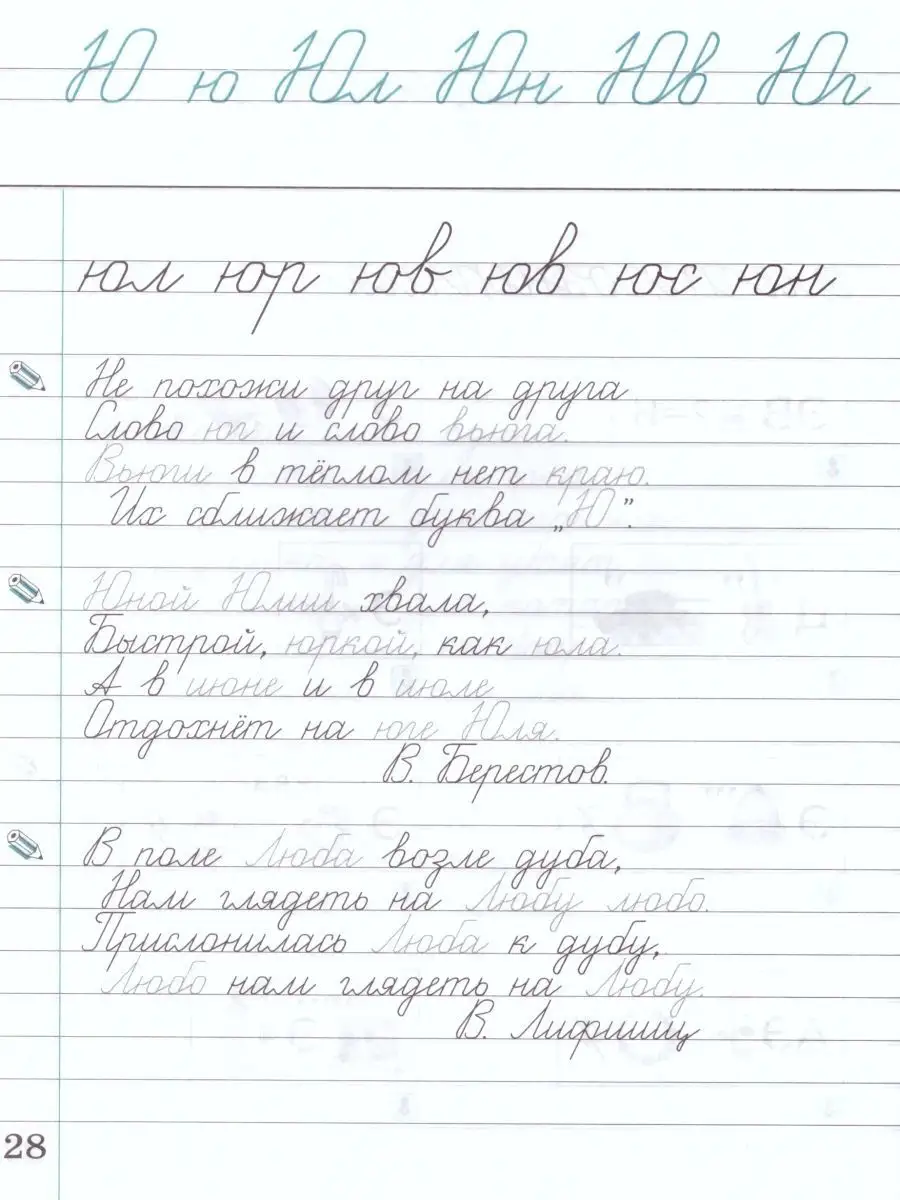 Ю ю Юл Юн Юв Юг
юл юр юв юв юс юн
Не похожи друг на друга
Слово юг и слово вьюга.
Вьюги в тёплом нет краю.
Их сближает буква „Ю”.
Юной Юлии хвала,
Быстрой, юркой, как юла.
А в июне и в июле
Отдохнёт на юге Юля.
В. Берестов.
В поле Люба возле дуба,
Нам глядеть на Любу любо.
Прислонилась Люба к дубу,
Любо нам глядеть на Любу.
В. Лифшиц
28